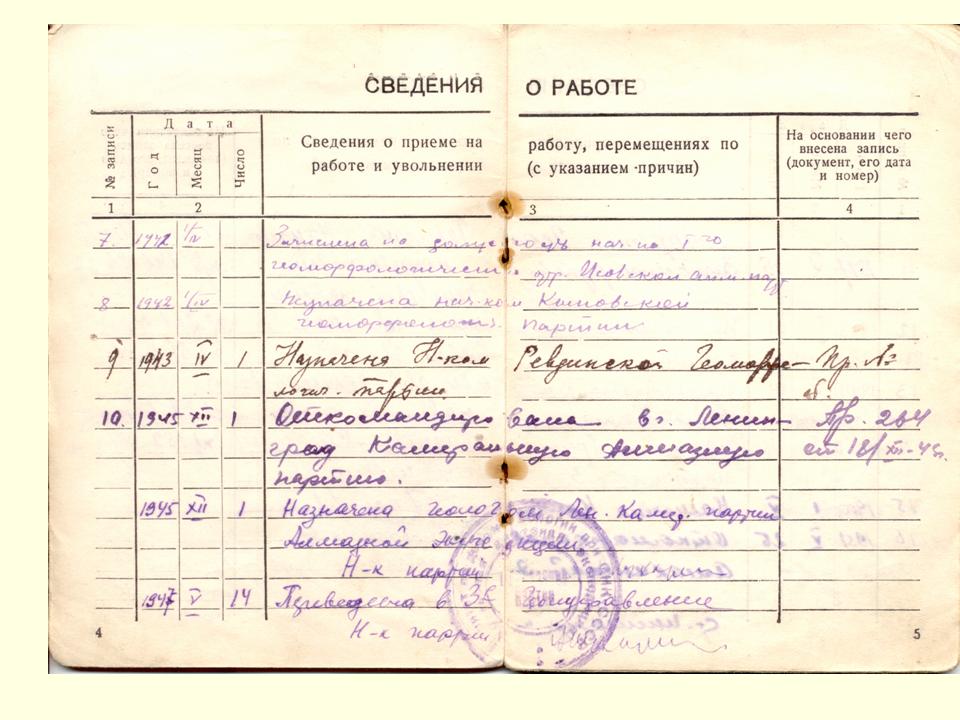 СВЕДЕНИЯ О РАБОТЕ
№ записи
Дата
Год
Месяц
Число
Сведения о приеме на работу, перемещениях по
работе и увольнении (с указанием причин)
На основании чего
внесена запись
(документ, его дата
и номер)
1 2 3 4
7. 1942 1/IV Зачислена на нач-ка 1го
геоморфологической
8 1942 Назначена нач-ком Кусовской
партии
9 1943 IV 1 Назначена Н-ком Ревдинской Геоморфо- Пр. №
логич. партии
10. 1945 XII 1 Откомандирована в г. Ленин- Пр. 264
град Камеральную Алмазную от 18/XII-45г.
партию.
1945 XII 1 Назначена геологом Лен. Камер. партии
Алмазной экспедиции
Н-к партии
1947 V 14 Переведена в 3е Геоуправление
Н-к партии
4
5